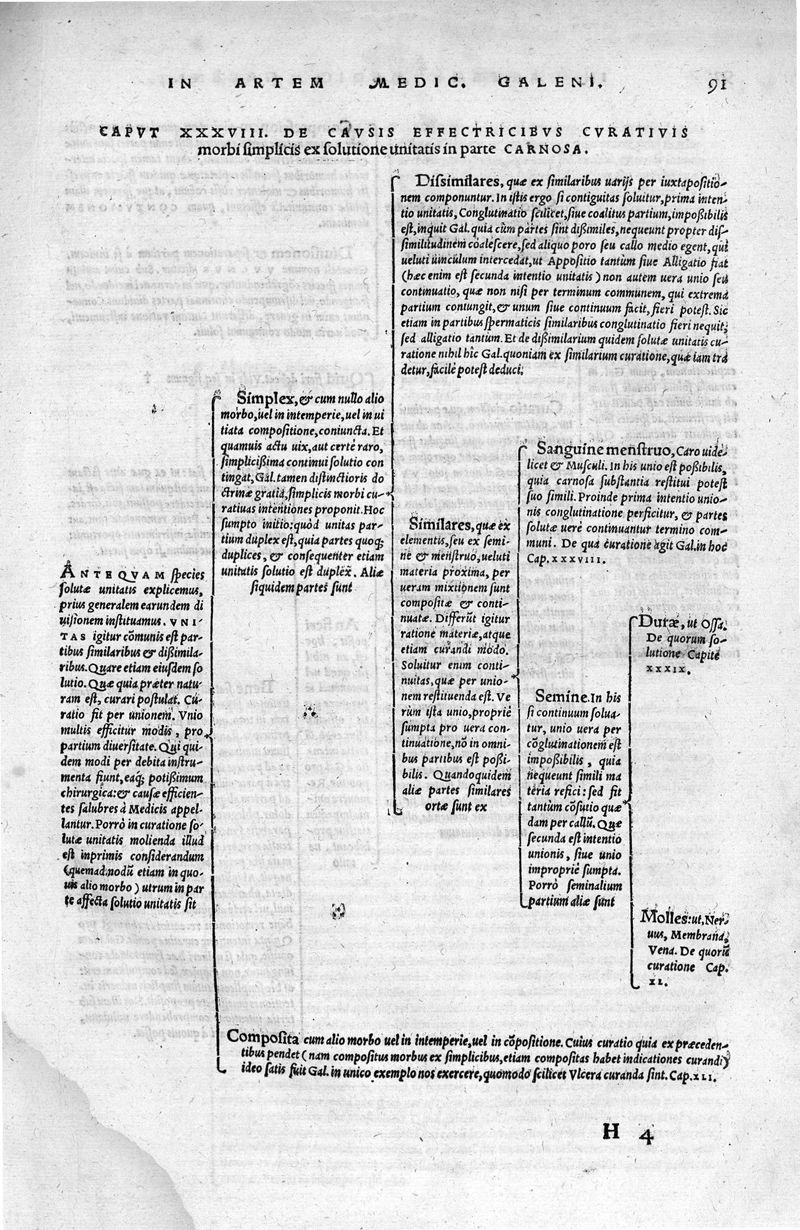 IN ARTEM MEDIC. GALENI. 91
CAPVT XXXVIII. DE CAVSIS EFFECTRICIBVS CVRATIVIS
morbi simplicis ex solutione unitatis in parte CARNOSA.
ANTEQVAM species
solutæ unitatis explicemus,
prius generalem earundem di
uisionem instituamus. VNI-
TAS igitur cōmunis est par-
tibus similaribus & dißimila-
ribus. Quare etiam eiusdem so
lutio. Quæ quia præter natu-
ram est, curari postulat. Cu-
ratio fit per unionem. Vnio
multis efficitur modis, pro
partium diuersitate. Qui qui-
dem modi per debita instru-
menta fiunt, eaq́; potißimum
chirurgica: & causæ efficien-
tes salubres à Medicis appel-
lantur. Porrò in curatione so-
lutæ unitatis molienda illud
est inprimis considerandum
(quemadmodū etiam in quo-
uis alio morbo) utrum in par
te affecta solutio unitatis sit
Simplex, & cum nullo alio
morbo, uel in intemperie, uel in ui
tiata compositione, coniuncta. Et
quamuis actu uix, aut certè raro,
simplicißima continui solutio con
tingat, Gal. tamen distinctioris do
ctrinæ gratia, simplicis morbi cu-
ratiuas intentiones proponit. Hoc
sumpto initio: quòd unitas par-
tium duplex est, quia partes quoq;
duplices, & consequenter etiam
unitatis solutio est duplex. Aliæ
siquidem partes sunt
Dissimilares, quæ ex similaribus uarijs per iuxtapositio-
nem componuntur. In istis ergo si contiguitas soluitur, prima inten
tio unitatis, Conglutinatio scilicet, siue coalitus partium, impoßibilis
est, inquit Gal. quia cùm partes sint dißimiles, nequeunt propter dis-
similitudinem coalescere, sed aliquo poro seu callo medio egent, qui
ueluti uinculum intercedat, ut Appositio tantùm siue Alligatio fiat
(hæc enim est secunda intentio unitatis) non autem uera unio seu
continuatio, quæ non nisi per terminum communem, qui extrema
partium coniungit, & unum siue continuum facit, fieri potest. Sic
etiam in partibus spermaticis similaribus conglutinatio fieri nequit,
sed alligatio tantum. Et de dißimilarium quidem solutæ unitatis cu-
ratione nihil hîc Gal. quoniam ex similarium curatione, quæ iam tra
detur, facilè potest deduci.
Similares, quæ ex
elementis, seu ex semi-
ne & menstruo, ueluti
materia proxima, per
ueram mixtionem sunt
compositæ & conti-
nuatæ. Differūt igitur
ratione materiæ, atque
etiam curandi modo.
Soluitur enim conti-
nuitas, quæ per unio-
nem restituenda est. Ve
rùm ista unio, propriè
sumpta pro uera con-
tinuatione, nō in omni-
bus partibus est poßi-
bilis. Quandoquidem
aliæ partes similares
ortæ sunt ex
Sanguine menstruo, Caro uide-
licet & Musculi. In his unio est poßibilis,
quia carnosa substantia restitui potest
suo simili. Proinde prima intentio unio-
nis conglutinatione perficitur, & partes
solutæ uerè continuantur termino com-
muni. De qua curatione agit Gal. in hoc
Cap. XXXVIII.
Semine. In his
si continuum solua-
tur, unio uera per
cōglutinationem est
impoßibilis, quia
nequeunt simili ma
teria refici: sed fit
tantùm cōsutio quæ
dam per callū. Quæ
secunda est intentio
unionis, siue unio
impropriè sumpta.
Porrò seminalium
partium aliæ sunt
Duræ, ut Ossa.
De quorum so-
lutione Capite
XXXIX.
Molles: ut, Ner-
uus, Membrana,
Vena. De quorū
curatione Cap.
XL.
Composita cum alio morbo uel in intemperie, uel in cōpositione. Cuius curatio quia ex præceden-
tibus pendet (nam compositus morbus ex simplicibus, etiam compositas habet indicationes curandi)
ideo satis fuit Gal. in unico exemplo nos exercere, quomodo scilicet Vlcera curanda sint. Cap. XLI.
H 4